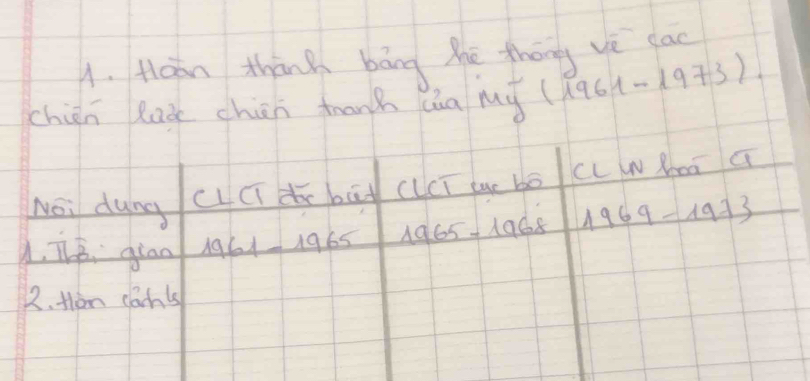 1. Hoàn thành bảng hệ thống về các
chiến lược chiến tranh của Mỹ (1961-1973).
Nội dung CLCT đặc biệt CLCT cục bộ CL VN hoá CT
1. Thời gian 1961-1965 1965-1968 1969-1973
2. Hoàn cảnh ls